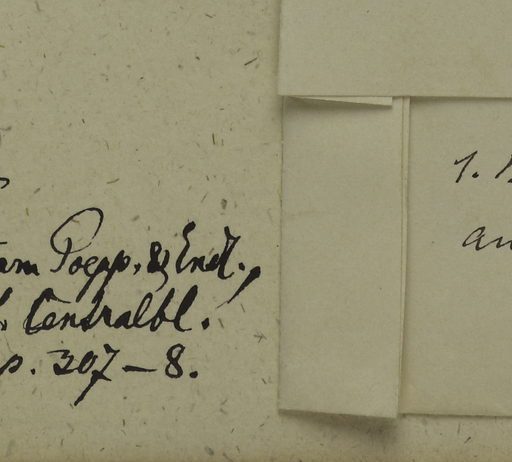 Poepp. & Endl.,
Centralbl.
p. 307–8.
1.
an